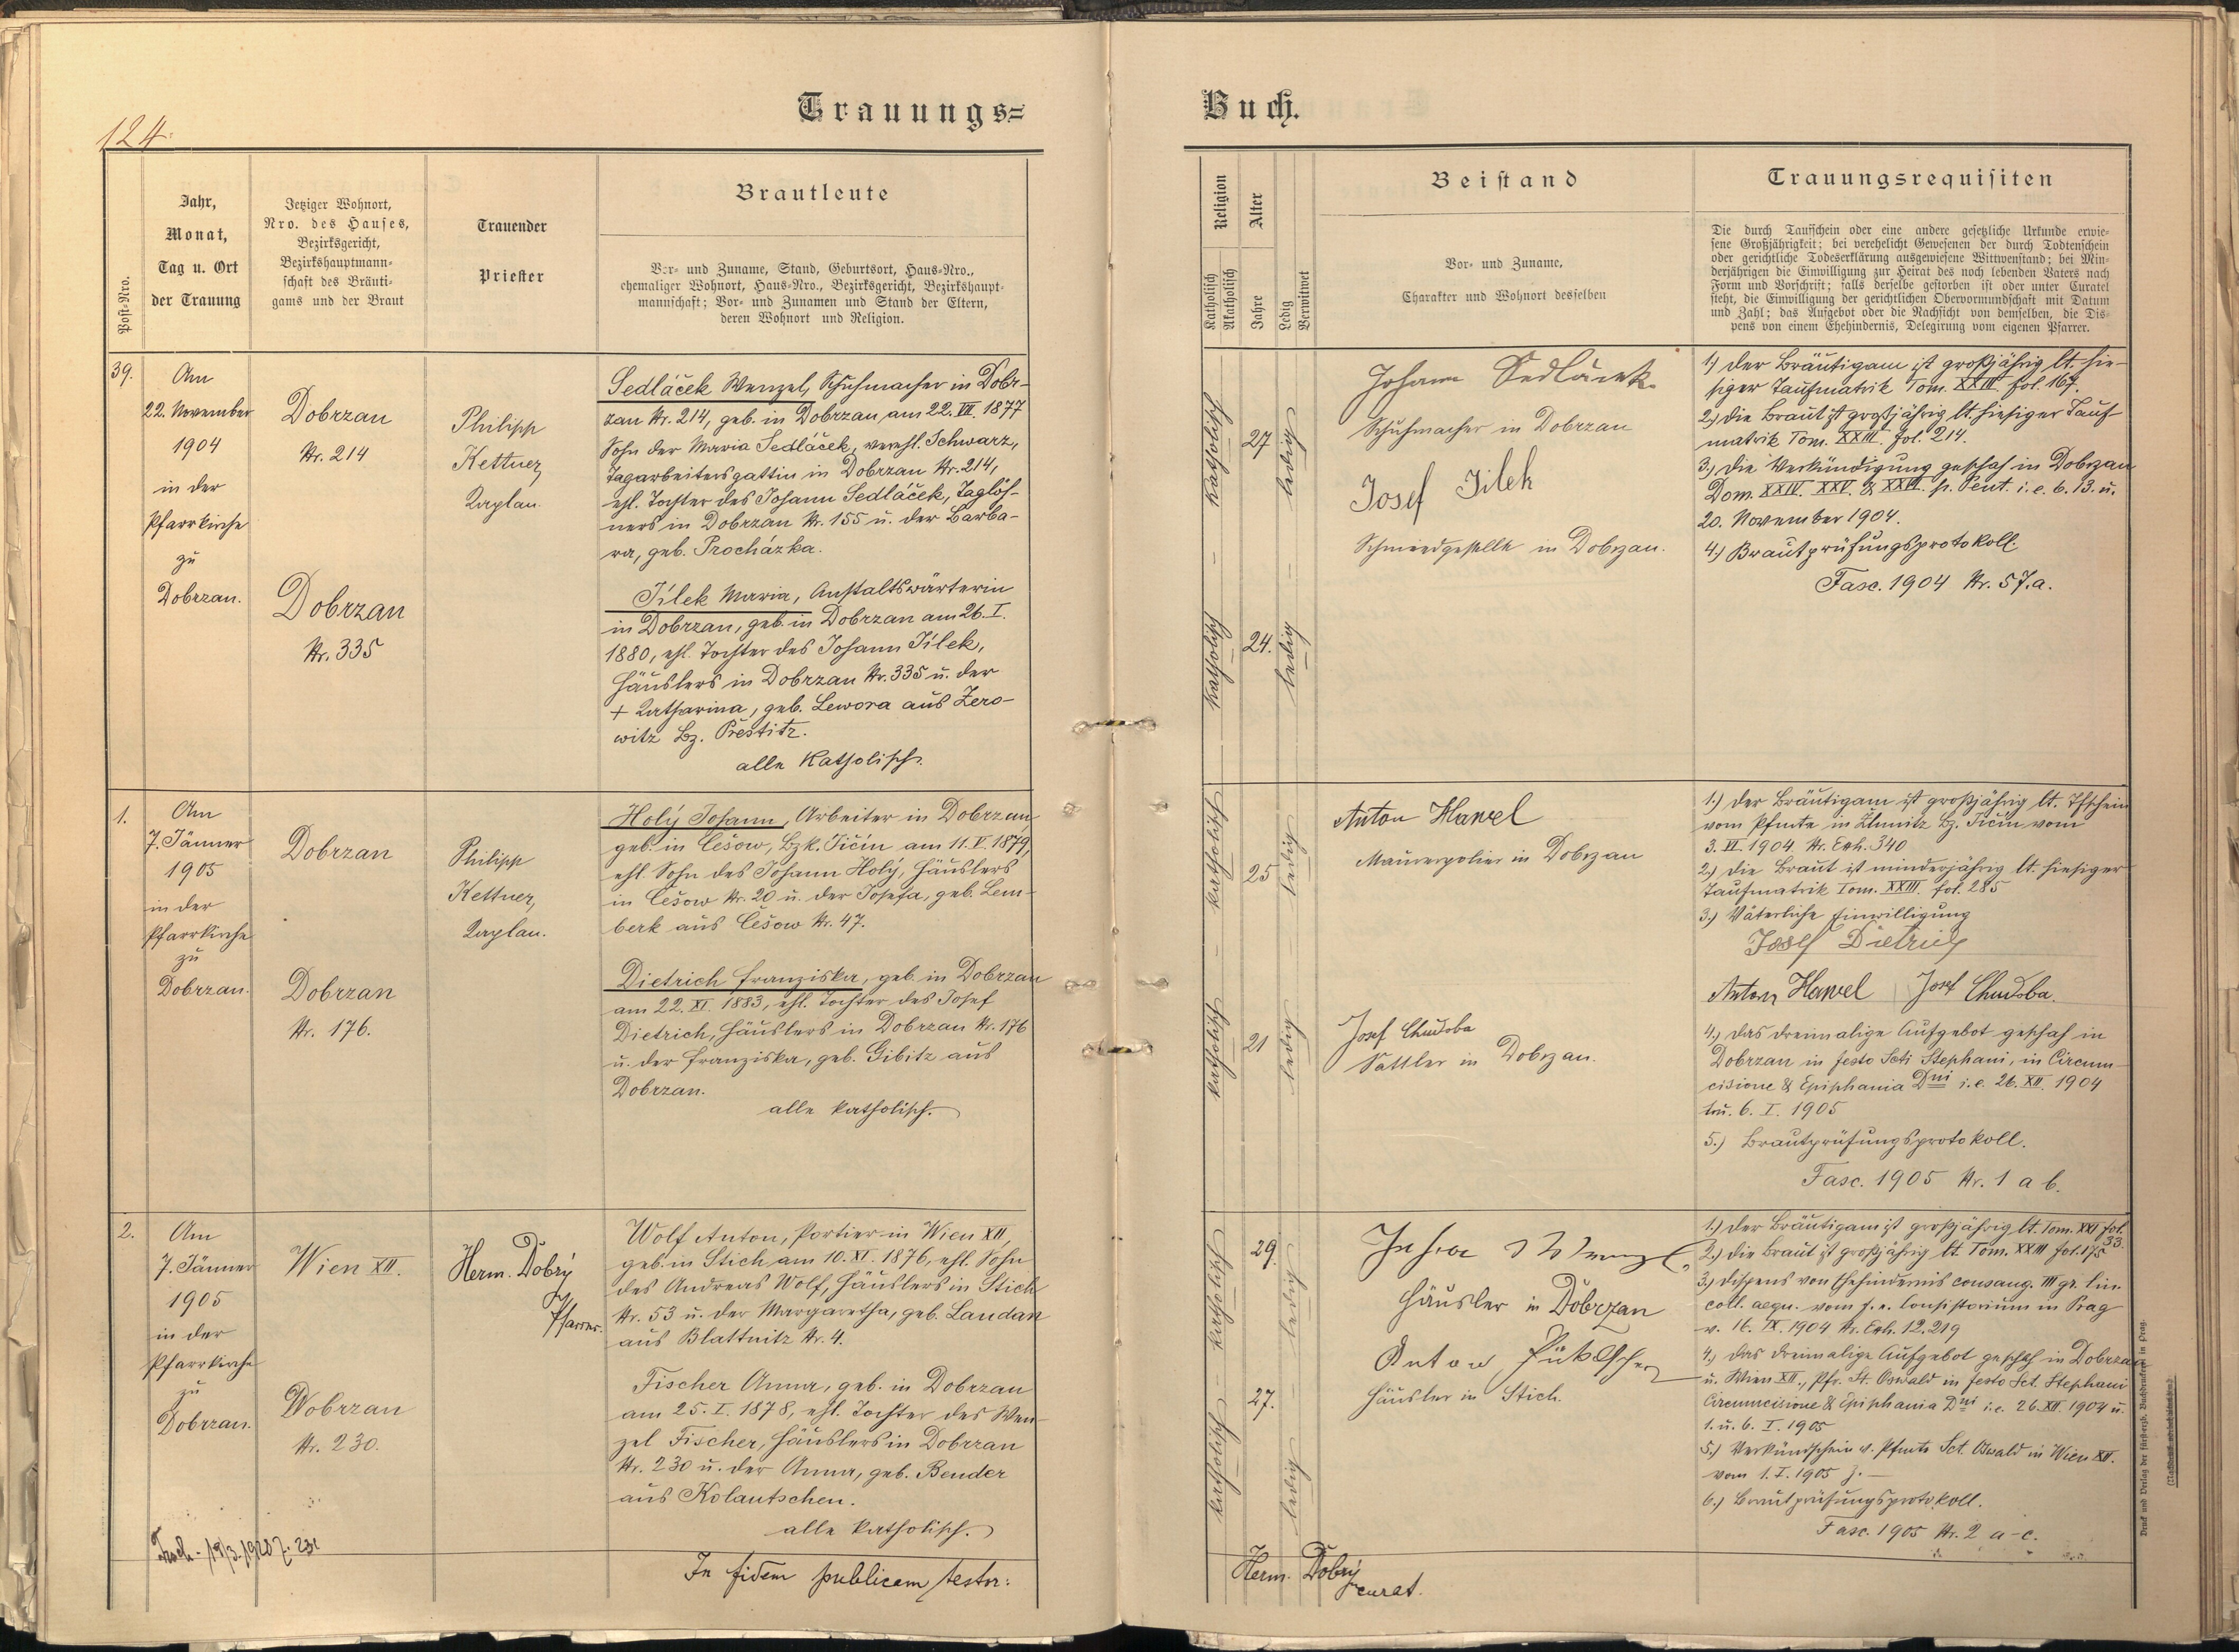 124.
Trauungs=
Post-Nro.
Jahr,
Monat,
Tag u. Ort
der Trauung
Jetziger Wohnort,
Nro. des Hauses,
Bezirksgericht,
Bezirkshauptmann-
schaft des Bräuti-
gams und der Braut
Trauender
Priester
Brautleute
Vor- und Zuname, Stand, Geburtsort, Haus-Nro.,
ehemaliger Wohnort, Haus-Nro., Bezirksgericht, Bezirkshaupt-
mannschaft; Vor- und Zunamen und Stand der Eltern,
deren Wohnort und Religion.
39.
Am
22. November
1904
in der
Pfarrkirche
zu
Dobrzan.
Dobrzan
Nr. 214
Dobrzan
Nr. 335
Philipp
Kettner,
Kaplan.
Sedláček Wenzel, Schuhmacher in Dobr-
zan Nr. 214, geb. in Dobrzan, am 22. VII. 1877
Sohn der Maria Sedláček, verehl. Schwarz,
Tagarbeitersgattin in Dobrzan Nr. 214,
ehl. Tochter des Johann Sedláček, Taglöh-
ners in Dobrzan Nr. 155 u. der Barba-
ra, geb. Procházka.
Jílek Maria, Anstaltswärterin
in Dobrzan, geb. in Dobrzan am 26. I.
1880, ehl. Tochter des Johann Jílek,
Häuslers in Dobrzan Nr. 335 u. der
+ Katharina, geb. Lewora aus Zero-
witz Bz. Přestitz.
alle Katholisch.
1.
Am
7. Jänner
1905
in der
Pfarrkirche
zu
Dobrzan.
Dobrzan
Dobrzan
Nr. 176.
Philipp
Kettner,
Kaplan.
Holý Johann, Arbeiter in Dobrzan,
geb. in Češow, Bzk. Jičín am 11. V. 1879,
ehl. Sohn des Johann Holý, Häuslers
in Češow Nr. 20 u. der Josefa, geb. Lem-
berk aus Češow Nr. 47.
Dietrich Franziska, geb. in Dobrzan
am 22. XI. 1883, ehl. Tochter des Josef
Dietrich, Häuslers in Dobrzan Nr. 176
u. der Franziska, geb. Gibitz aus
Dobrzan.
alle katholisch.
2.
Am
7. Jänner
1905
in der
Pfarrkirche
zu
Dobrzan.
Wien XII.
Dobrzan
Nr. 230.
Herm. Dobrý
Pfarrer.
Wolf Anton, Portier in Wien XII,
geb. in Stich am 10. XI. 1876, ehl. Sohn
des Andreas Wolf, Häuslers in Stich
Nr. 53 u. der Margaretha, geb. Landan
aus Blattnitz Nr. 4.
Fischer Anna, geb. in Dobrzan
am 25. I. 1878, ehl. Tochter des Wen-
zel Fischer, Häuslers in Dobrzan
Nr. 230 u. der Anna, geb. Bender
aus Kolautschen.
alle katholisch.
In fidem publicam testor:
Buch.
Religion
Katholisch
Akatholisch
Alter
Jahre
Ledig
Verwitwet
Beistand
Vor- und Zuname,
Charakter und Wohnort desselben
Trauungsrequisiten
Die durch Taufschein oder eine andere gesetzliche Urkunde erwie-
sene Großjährigkeit; bei verehelicht Gewesenen der durch Todtenschein
oder gerichtliche Todeserklärung ausgewiesene Wittwenstand; bei Min-
derjährigen die Einwilligung zur Heirat des noch lebenden Vaters nach
Form und Vorschrift; falls derselbe gestorben ist oder unter Curatel
steht, die Einwilligung der gerichtlichen Obervormundschaft mit Datum
und Zahl; das Aufgebot oder die Nachsicht von demselben, die Dis-
pens von einem Ehehindernis, Delegirung vom eigenen Pfarrer.
Katholisch
27
ledig
Katholisch
24.
ledig
Johann Sedláček
Schuhmacher in Dobrzan
Josef Jilek
Schmiedgeselle in Dobrzan.
1.) Der Bräutigam ist großjährig lt. hie-
siger Taufmatrik Tom. XXIII. fol. 167.
2.) Die Braut ist großjährig lt. hiesiger Tauf
matrik Tom. XXIII. fol. 214.
3.) Die Verkündigung geschah in Dobrzan
Dom. XXIV. XXV. & XXVI. p. Pent. i. e. 6. 13. u.
20. November 1904.
4.) Brautprüfungsprotokoll.
Fasc. 1904 Nr. 57. a.
katholisch
25
ledig
katholisch
21
ledig
Anton Hawel
Maurerpolier in Dobrzan
Josef Chudoba
Sattler in Dobrzan.
1.) Der Bräutigam ist großjährig lt. Tfschein
vom Pfmte in Bz. Jičín vom
3. VI. 1904 Nr. Exh. 340
2.) Die Braut ist minderjährig lt. hiesiger
Taufmatrik Tom. XXIII. fol. 285
3.) Väterliche Einwilligung
Josef Dietrich
Anton Hawel Josef Chudoba.
4.) Das dreimalige Aufgebot geschah in
Dobrzan in festo Scti Stephani, in Circum-
cisione & Epiphania Dni i. e. 26. XII. 1904
1. u. 6. I. 1905
5.) Brautprüfungsprotokoll.
Fasc. 1905 Nr. 1 a b.
katholisch
29.
ledig
katholisch
27.
ledig
Wenzl
Häusler in Dobrzan
Anton
Häusler in Stich.
1.) Der Bräutigam ist großjährig lt. Tom. XXI fol. 33.
2.) Die Braut ist großjährig lt. Tom. XXIII fol. 175
3.) Dispens von Ehehindernis consang. III gr. lin.
coll. aequ. vom f. e. Consistorium in Prag
v. 16. IX. 1904 Nr. Exh. 12.219
4.) Das dreimalige Aufgebot geschah in Dobrzan
u. Wien XII., Pfr. St. Oswald in festo Sct. Stephani
Circumcisione & Epiphania Dni i. e. 26. XII. 1904 u.
1. u. 6. I. 1905
5.) Verkündschein v. Pfmte Sct. Oswald in Wien XII.
vom 1. I. 1905 Z. —
6.) Brautprüfungsprotokoll.
Fasc. 1905 Nr. 2 a-c.
Herm. Dobrý
curat.
Druck und Verlag der fürsterzb. Buchdruckerei in Prag.